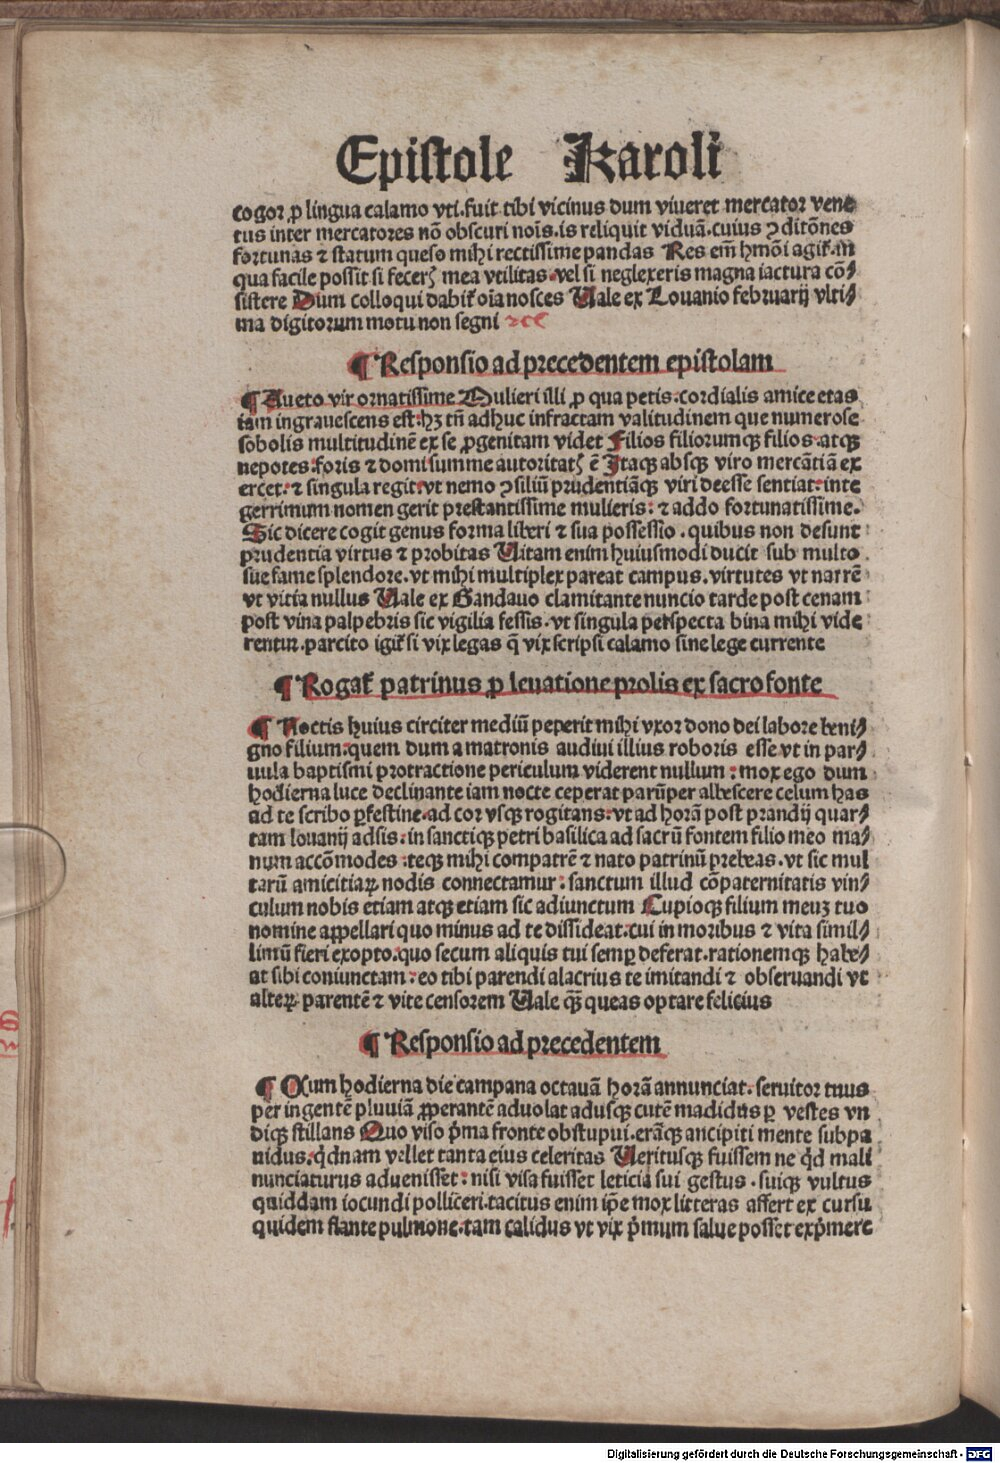 Epistole Karoli
cogor ꝓ lingua calamo vti.fuit tibi vicinus dum viueret mercator vene
tus inter mercatores nō obscuri noīs.is reliquit viduā.cuius ↄditōnes
fortunas ⁊ statum queso mihi rectissime pandas Res em̄ hmōi agit̄.in
qua facile possit si feceꝝ mea vtilitas.vel si neglexeris magna iactura cō⸗
sistere Dum colloqui dabit̄ oīa nosces Uale ex Louanio februarij vlti⸗
ma digitorum motu non segni ⁊cē
¶ Responsio ad precedentem epistolam
¶ Aueto vir ornatissime Mulieri illi ꝓ qua petis:cordialis amice etas
iam ingrauescens est:hꝫ tn̄ adhuc infractam valitudinem que numerose
sobolis multitudinē ex se ꝓgenitam videt Filios filiorumqꝫ filios.atqꝫ
nepotes:foris ⁊ domi summe autoritatꝭ ē Itaqꝫ absqꝫ viro mercātiā ex
ercet.⁊ singula regit:vt nemo ↄsiliū prudentiāqꝫ viri deesse sentiat:inte
gerrimum nomen gerit prestantissime mulieris: ⁊ addo fortunatissime.
Sic dicere cogit genus forma liberi ⁊ sua possessio.quibus non desunt
prudentia virtus ⁊ probitas Uitam enim huiusmodi ducit sub multo
sue fame splendore.vt mihi multiplex pareat campus.virtutes vt narrē
vt vitia nullus Uale ex Gandauo clamitante nuncio tarde post cenam
post vina palpebris sic vigilia fessis.vt singula perspecta bina mihi vide
rentur.parcito igit̄ si vix legas q̄ vix scripsi calamo sine lege currente
¶ Rogat̄ patrinus ꝓ leuatione prolis ex sacro fonte
¶ Noctis huius circiter mediū peperit mihi vxor dono dei labore beni⸗
gno filium:quem dum a matronis audiui illius roboris esse vt in par⸗
uula baptismi protractione periculum viderent nullum:mox ego dum
hodierna luce declinante iam nocte ceperat parūper albescere celum has
ad te scribo p̱festine.ad cor vsqꝫ rogitans:vt ad horā post prandij quar⸗
tam louanij adsis.in sanctiqꝫ petri basilica ad sacrū fontem filio meo ma⸗
num accōmodes:teqꝫ mihi compatrē ⁊ nato patrinū prebeas.vt sic mul
tarū amicitiaꝝ nodis connectamur:sanctum illud cōpaternitatis vin⸗
culum nobis etiam atqꝫ etiam sic adiunctum Cupioqꝫ filium meuꝫ tuo
nomine appellari quo minus ad te dissideat:cui in moribus ⁊ vita simil⸗
limū fieri exopto.quo secum aliquis tui semꝑ deferat.rationemqꝫ habe⸗
at sibi coniunctam:eo tibi parendi alacrius te imitandi ⁊ obseruandi vt
alteꝝ parentē ⁊ vite censorem Uale qꝫ̄ queas optare felicius
¶ Responsio ad precedentem
¶ Cum hodierna die campana octauā horā annunciat.seruitor tuus
per ingentē pluuiā ꝓperantē aduolat adusqꝫ cutē madidus ꝑ vestes vn
diqꝫ stillans Quo viso p̄ma fronte obstupui.erāqꝫ ancipiti mente subpa
uidus.qͥdnam vellet tanta eius celeritas Ueritusqꝫ fuissem ne qͥd mali
nunciaturus aduenisset:nisi visa fuisset leticia sui gestus.suiqꝫ vultus
quiddam iocundi polliceri.tacitus enim ip̄e mox litteras affert ex cursu
quidem flante pulmone.tam calidus vt vix p̄mum salue posset exp̄mere
Digitalisierung gefördert durch die Deutsche Forschungsgemeinschaft - DFG